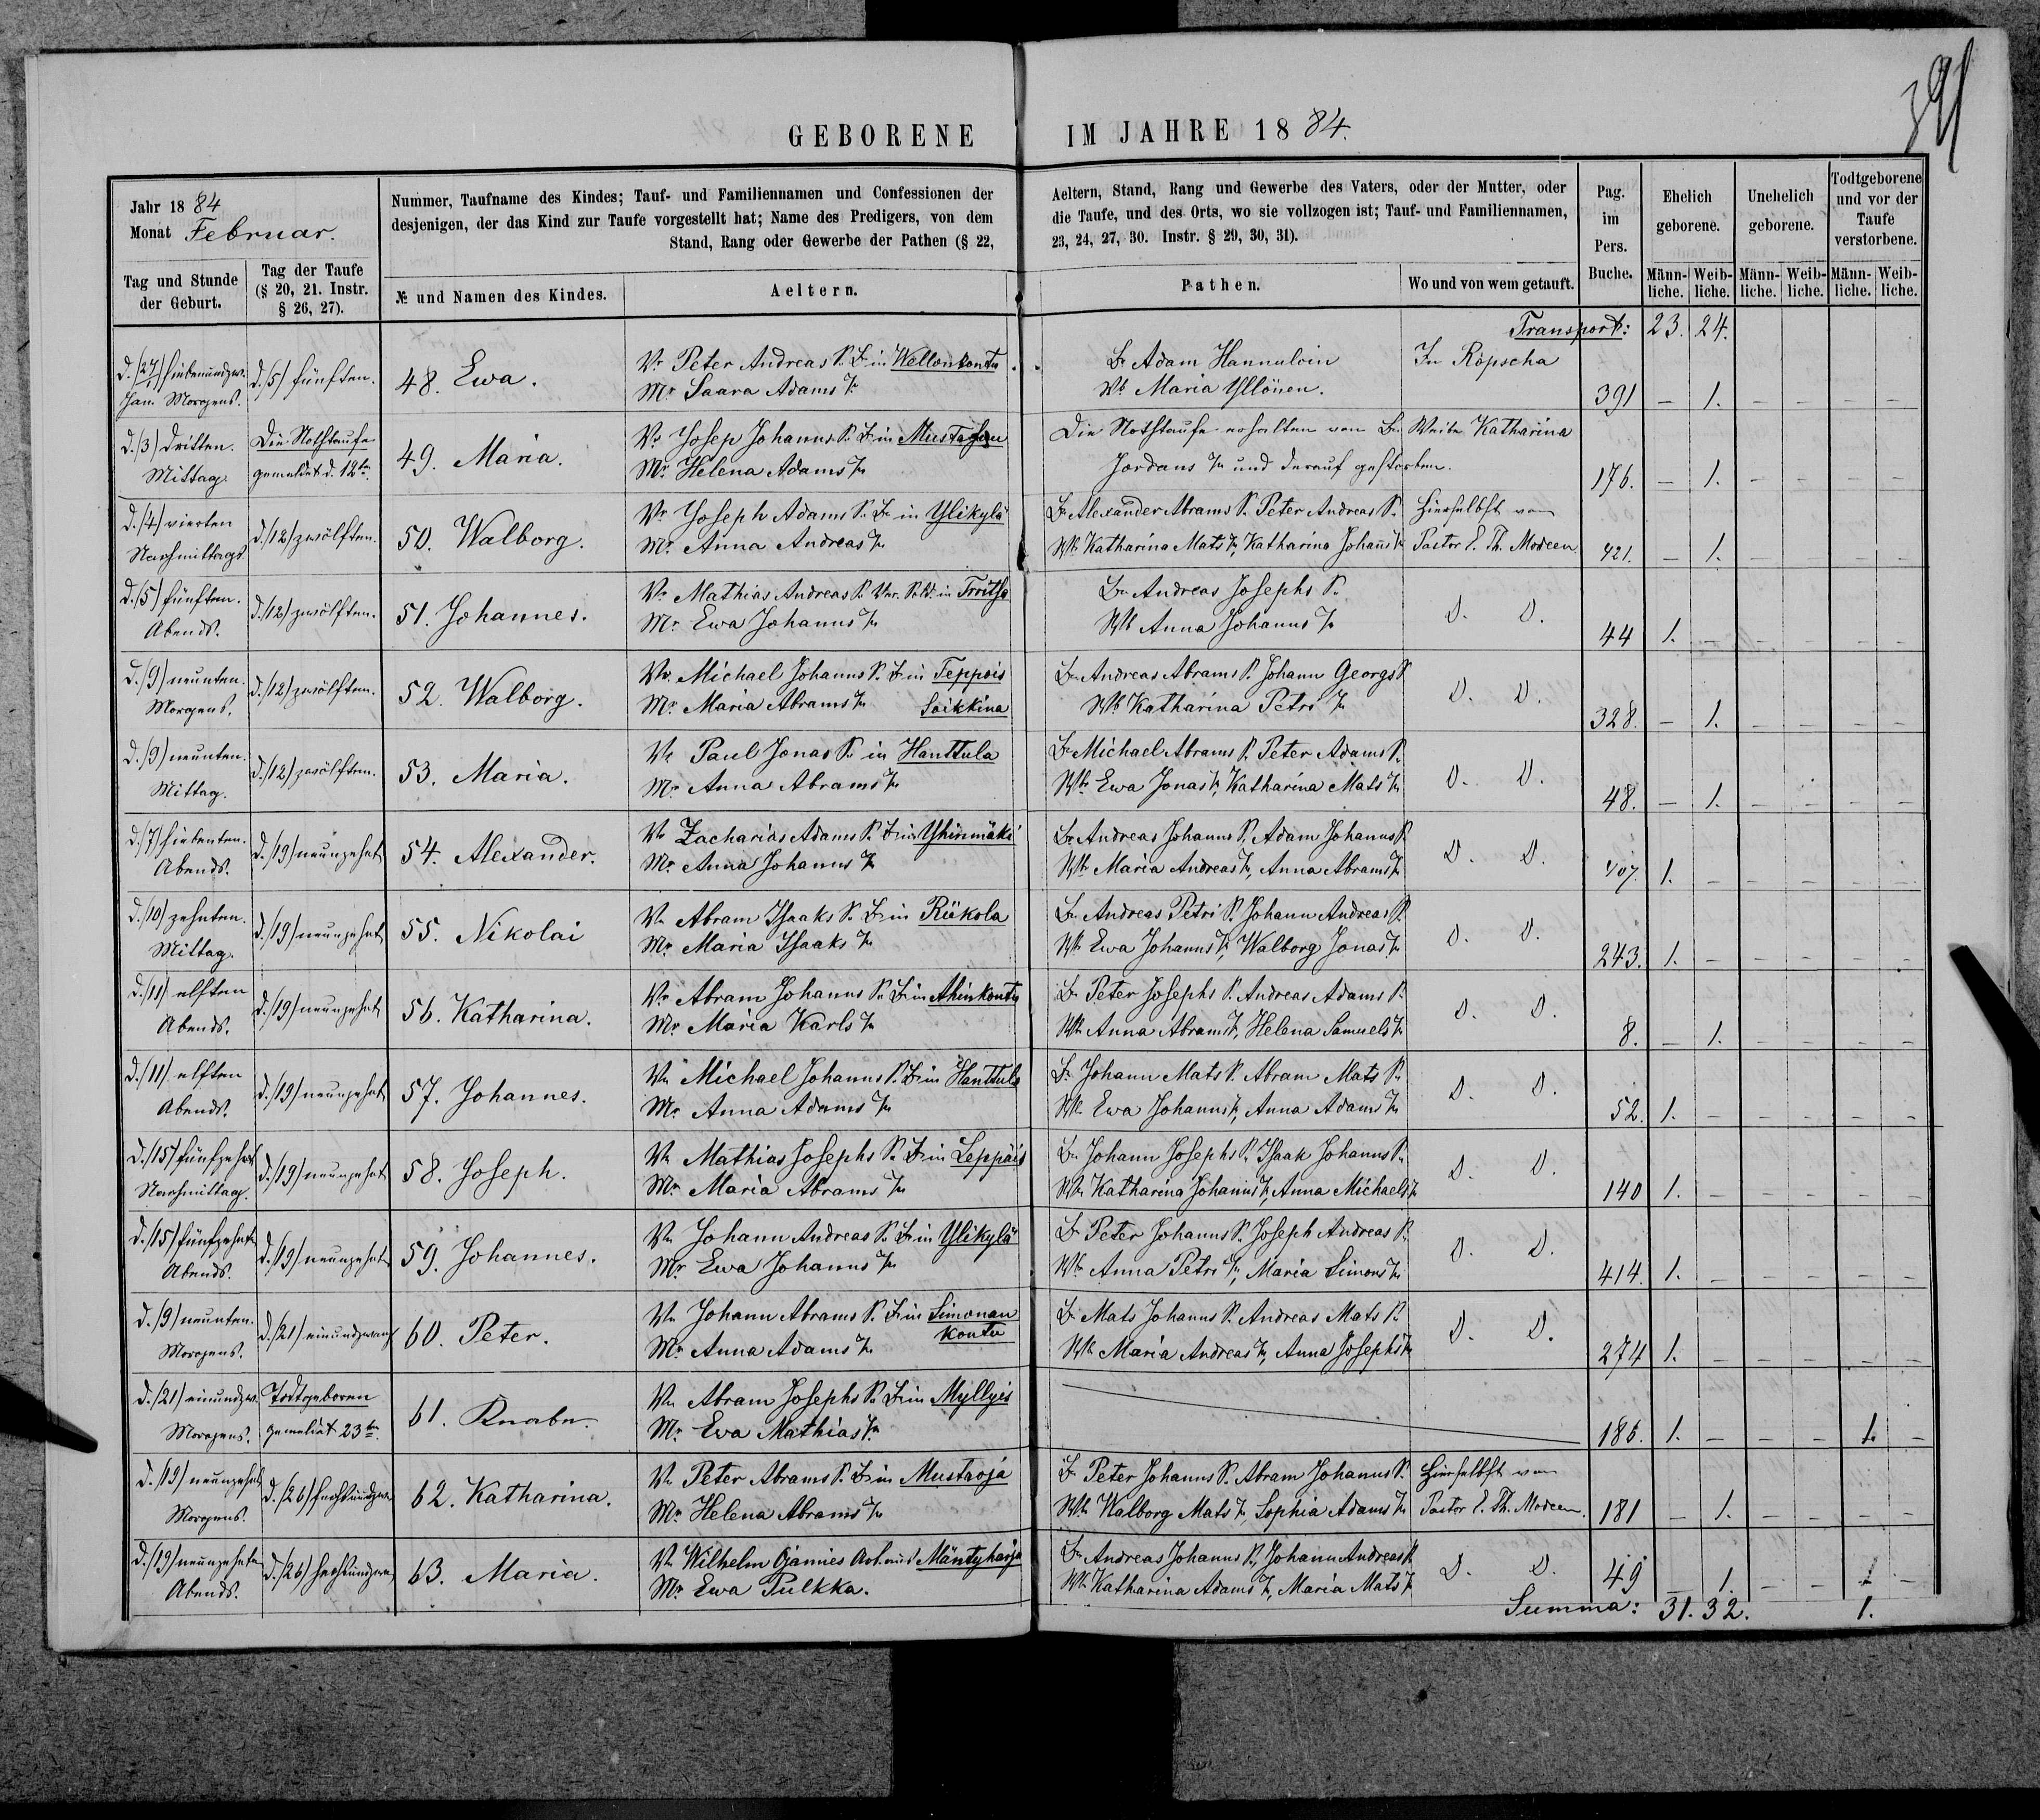 391
GEBORENE IM JAHRE 1884.
Jahr 1884
Monat Februar.
Nummer, Taufname des Kindes; Tauf- und Familiennamen und Confessionen der
desjenigen, der das Kind zur Taufe vorgestellt hat; Name des Predigers, von dem
Stand, Rang oder Gewerbe der Pathen (§ 22,
Aeltern, Stand, Rang und Gewerbe des Vaters, oder der Mutter, oder
die Taufe, und des Orts, wo sie vollzogen ist; Tauf- und Familiennamen,
23, 24, 27, 30. Instr. § 29, 30, 31).
Pag. im Pers. Buche.
Ehelich geborene.
Unehelich geborene.
Todtgeborene und vor der Taufe verstorbene.
Tag und Stunde der Geburt.
Tag der Taufe (§ 20, 21. Instr. § 26, 27).
№ und Namen des Kindes.
Aeltern.
Pathen.
Wo und von wem getauft.
Männliche. Weibliche. Männliche. Weibliche. Männliche. Weibliche.
Transport: 23. 24.
d. (27) siebenundzw. Jan. Morgens.
d. (5) fünften.
48. Ewa.
Vr Peter Andreas S. Br in Wellonkontu
Mr Saara Adams Tr
Br Adam Hannuloin
Wb Maria Yllönen.
In Röpscha
391 – 1. – – – –
d. (3) dritten. Mittag.
Die Nothtaufe gemeldet d. 12ten.
49. Maria.
Vr Josep Johanns S. Br in Mustaojan
Mr Helena Adams Tr
Die Nothtaufe erhalten von Br. Weibe Katharina
Jordans Tr und darauf gestorben.
176. – 1. – – – –
d. (4) vierten Nachmittags
d. (12) zwölften.
50. Walborg.
Vr Joseph Adams S. Br in Ylikylä
Mr Anna Andreas Tr
Br Alexander Abrams S. Peter Andreas S.
Wb Katharina Mats Tr Katharina Johans Tr
Hierselbst von
Pastor E. Th. Modeen
421. – 1. – –
d. (5) fünften. Abends.
d. (12) zwölften.
51. Johannes.
Vr Mathias Andreas S. Ver. Sold. in Troitsa
Mr Ewa Johanns Tr
Br Andreas Josephs S.
Wb Anna Johanns Tr
D. D.
44 1. – – – – –
d. (9) neunten. Morgens.
d. (12) zwölften.
52. Walborg.
Vr Michael Johanns S. Br in Teppois
Mr Maria Abrams Tr Soikkina
Br Andreas Abrams S. Johann Georgs S
Wb Katharina Petri Tr
D. D.
328. – 1. – – – –
d. (9) neunten. Mittag.
d. (12) zwölften.
53. Maria.
Vr Paul Jonas S. in Hanttula
Mr Anna Abrams Tr
Br Michael Abrams S. Peter Adams S.
Wb Ewa Jonas Tr, Katharina Mats Tr
D. D.
48. – 1. – – – –
d. (7) siebenten. Abends.
d. (19) neunzehnt
54. Alexander.
Vr Zacharias Adams S. Br in Yhinmäki
Mr Anna Johanns Tr
Br Andreas Johanns S. Adam Johanns S.
Wb Maria Andreas Tr, Anna Abrams Tr
D. D.
407. 1. – – – – –
d. (10) zehnten. Mittag.
d. (19) neunzehnt
55. Nikolai
Vr Abram Isaaks S. Br in Riikola
Mr Maria Isaaks Tr
Br Andreas Petri S. Johann Andreas S.
Wb Ewa Johanns Tr, Walborg Jonas Tr
D. D.
243. 1. – – – – –
d. (11) elften Abends.
d. (19) neunzehnt
56. Katharina.
Vr Abram Johanns S. Br in Ahinkontu
Mr Maria Karls Tr
Br Peter Josephs S. Andreas Adams S.
Wb Anna Abrams Tr, Helena Samuels Tr
D. D.
8. – 1. – – – –
d. (11) elften Abends.
d. (19) neunzehnt
57. Johannes.
Vr Michael Johanns S. Br in Hanttula
Mr Anna Adams Tr
Br Johann Mats S. Abram Mats S.
Wb Ewa Johanns Tr, Anna Adams Tr
D. D.
52. 1. – – – – –
d. (15) fünfzehnt Nachmittag.
d. (19) neunzehnt
58. Joseph.
Vr Mathias Josephs S. Br in Leppäis
Mr Maria Abrams Tr
Br Johann Josephs S. Isaak Johanns S.
Wb Katharina Johanns Tr, Anna Michaels Tr
D. D.
140 1. – – – – –
d. (15) fünfzehnt Abends.
d. (19) neunzehnt
59. Johannes.
Vr Johann Andreas S. Br in Ylikylä
Mr Ewa Johanns Tr
Br Peter Johanns S. Joseph Andreas S.
Wb Anna Petri Tr, Maria Simons Tr
D. D.
414. 1. – – – – –
d. (9) neunten. Morgens.
d. (21) einundzwanz
60. Peter.
Vr Johann Abrams S. Br in Simonan
Mr Anna Adams Tr kontu
Br Mats Johanns S. Andreas Mats S.
Wb Maria Andreas Tr, Anna Josephs Tr
D. D.
274 1. – – – – –
d. (21) einundzw. Morgens.
Todtgeboren gemeldet 23ten.
61. Knabe.
Vr Abram Josephs S. Br in Myllyis
Mr Ewa Mathias Tr.
186. 1. – – – 1. –
d. (19) neunzehnt Morgens.
d. (26) sechsundzwa
62. Katharina.
Vr Peter Abrams S. Br in Mustaoja
Mr Helena Abrams Tr
Br Peter Johanns S. Abram Johanns S.
Wb Walborg Mats Tr, Sophia Adams Tr
Hierselbst von
Pastor E. Th. Modeen.
181 – 1. – – – –
d. (19) neunzehnten Abends.
d. (26) sechsundzwa
63. Maria.
Vr Wilhelm Ojamies Arb. aus Mäntyharja
Mr Ewa Pulkka.
Br Andreas Johanns S., Johann Andreas S
Wb Katharina Adams Tr, Maria Mats Tr
D. D.
49 – 1. – – 1 –
Summa: 31. 32. 1.